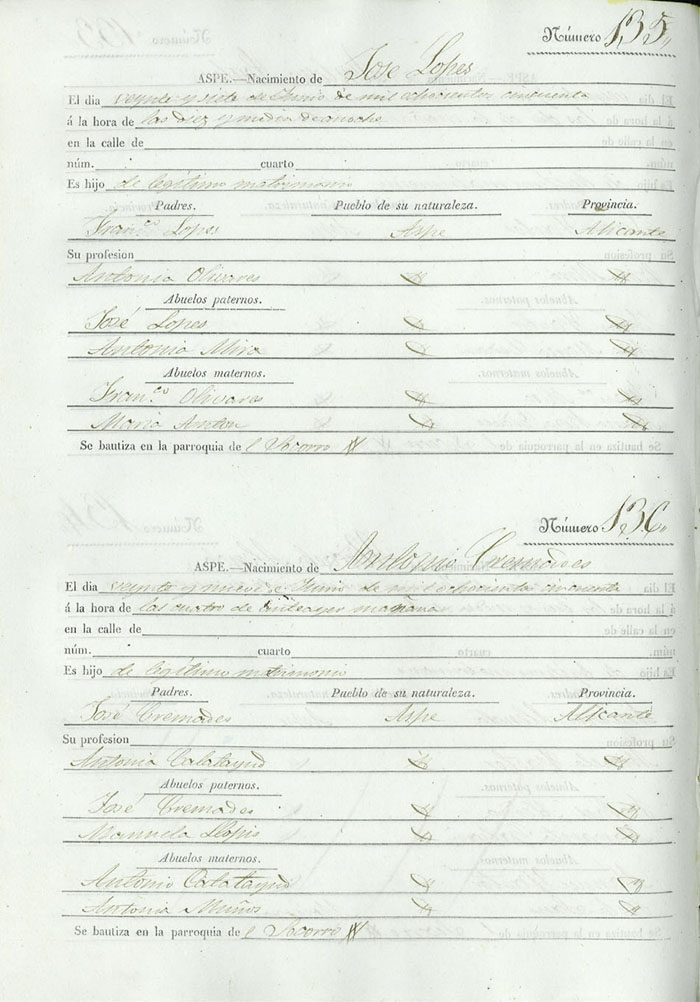 Número 135,,
ASPE.—Nacimiento de Jose Lopes
El dia veynte y siete de Junio de mil ochocientos cincuenta
á la hora de las diez y media de anoche
en la calle de
núm. cuarto
Es hijo de legítimo matrimonio
Padres. Pueblo de su naturaleza. Provincia.
Fran.co Lopes Aspe Alicante
Su profesion
Antonia Olivares
Abuelos paternos.
José Lopes
Antonia Miro
Abuelos maternos.
Fran.co Olivares
Maria Anton
Se bautiza en la parroquia de l Socorro
Número 136,,
ASPE.—Nacimiento de Antonio Cremades
El dia veynte y nueve Junio de mil ochocienta cincuenta
á la hora de las cuatro de mañana
en la calle de
núm. cuarto
Es hijo de legítimo matrimonio
Padres. Pueblo de su naturaleza. Provincia.
José Cremades Aspe Alicante
Su profesion
Antonia Calatayud
Abuelos paternos.
José Cremades
Manuela Llopis
Abuelos maternos.
Antonio Calatayud
Antonia Muños
Se bautiza en la parroquia de l Socorro